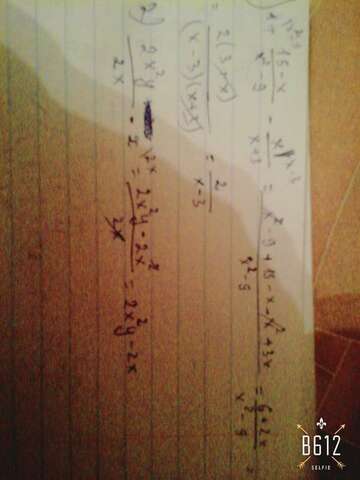 1+ 15-x/x²-9 - x/x+3 = x²-9+15-x-x²+3x/x²-9 = 6+2x/x²-9 =
= 2(3+x)/(x-3)(x+3) = 2/x-3
2) 2x²y/2x - x = 2x²y-2x²/2x = 2x²y-2x
B612
SELFIE